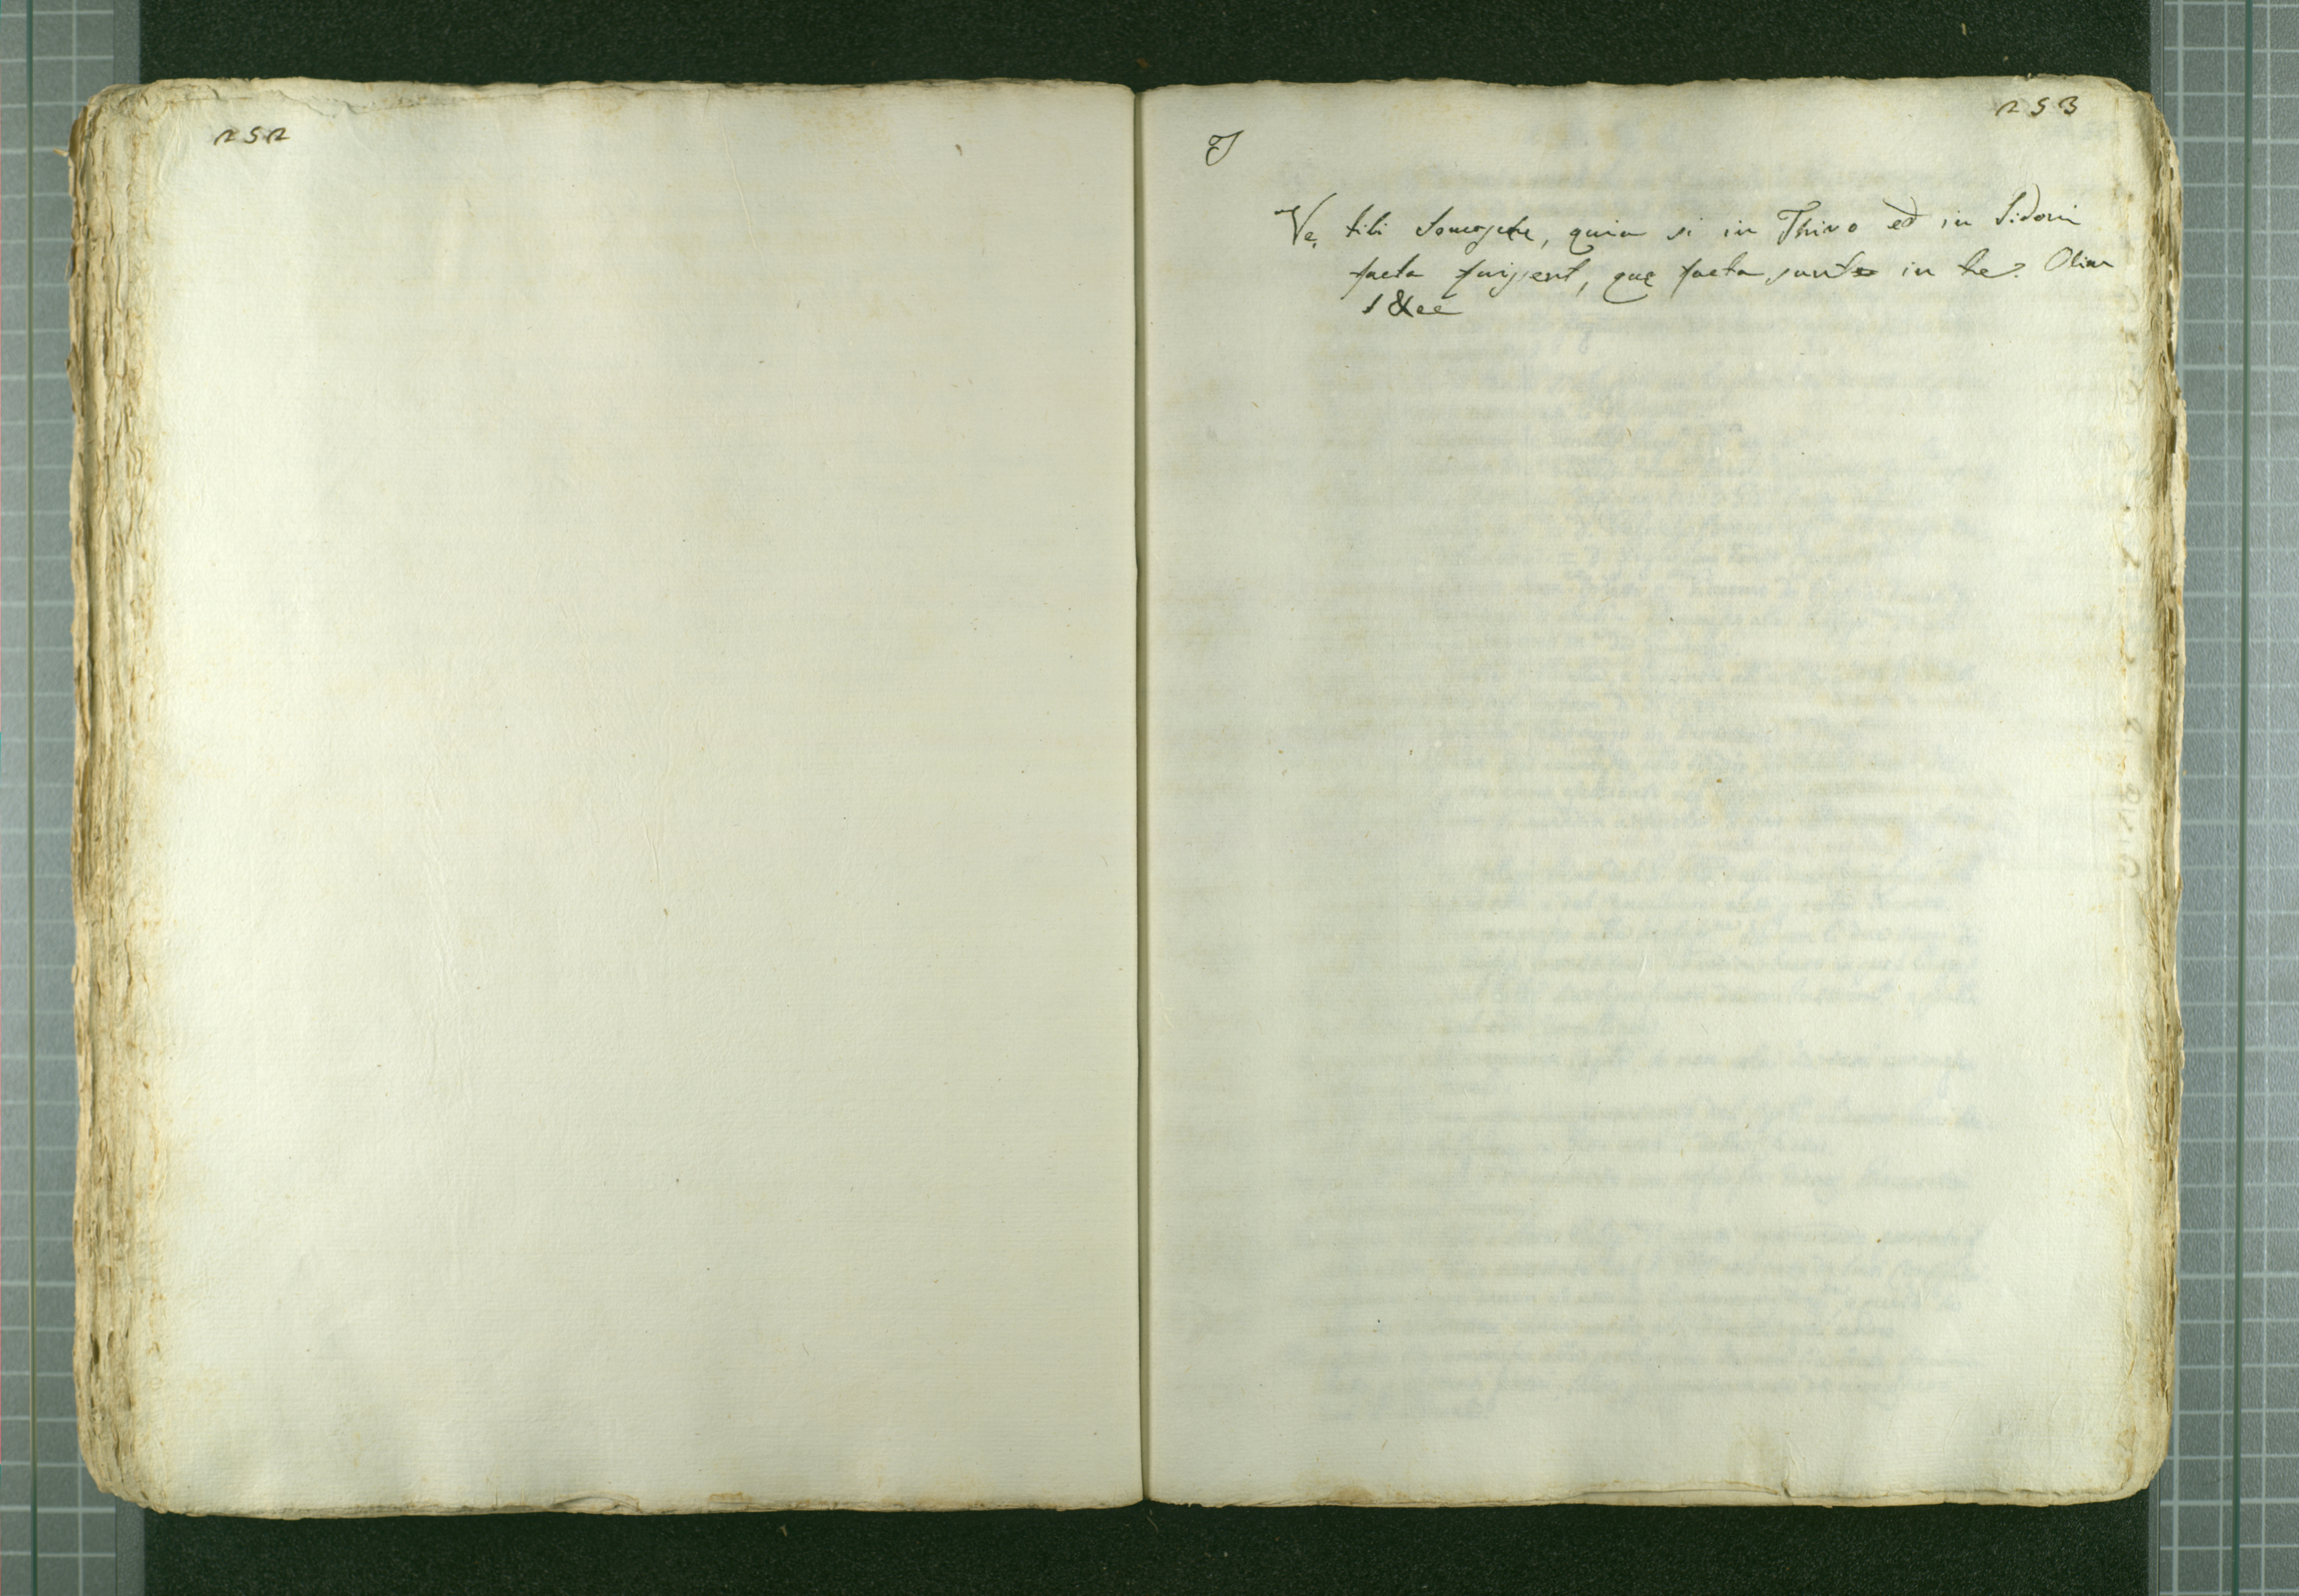 252
253
Vę tibi, quia si in Thiro et in Sidoni
facta fuissent, quę facta sunt in te. Olim
&cc